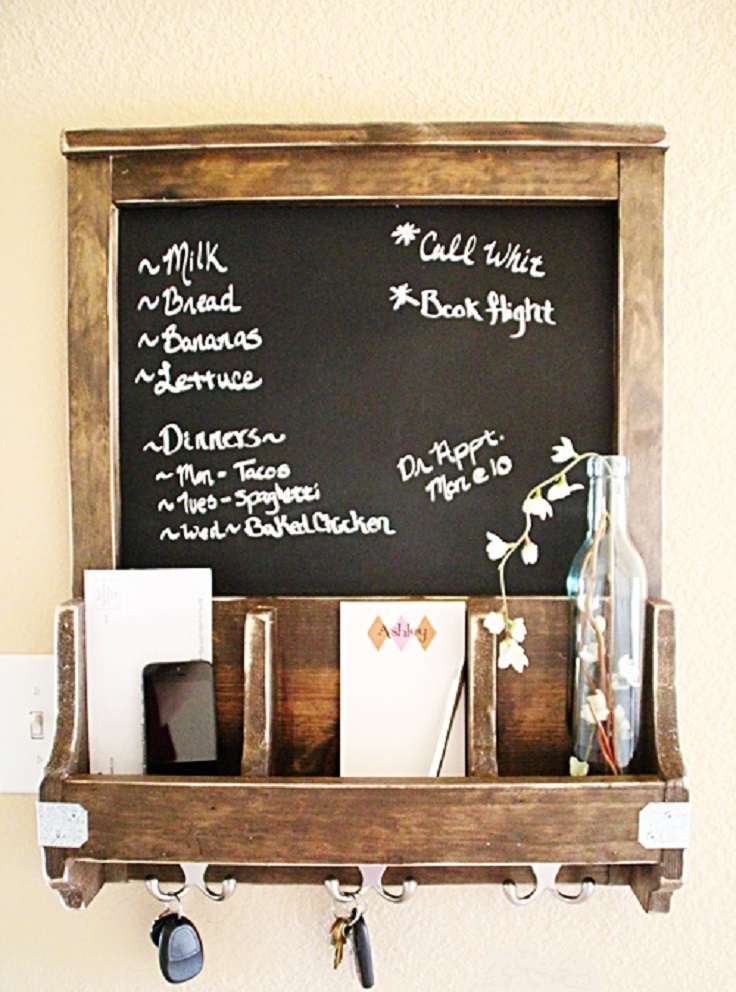 ~Milk
~Bread
~Bananas
~Lettuce
~Dinners~
~Mon- Tacos
~Tues-Spaghetti
~Wed~Baked Chicken
*Call Whit
*Book flight
Dr. Appt.
Mon @ 10
Ashley